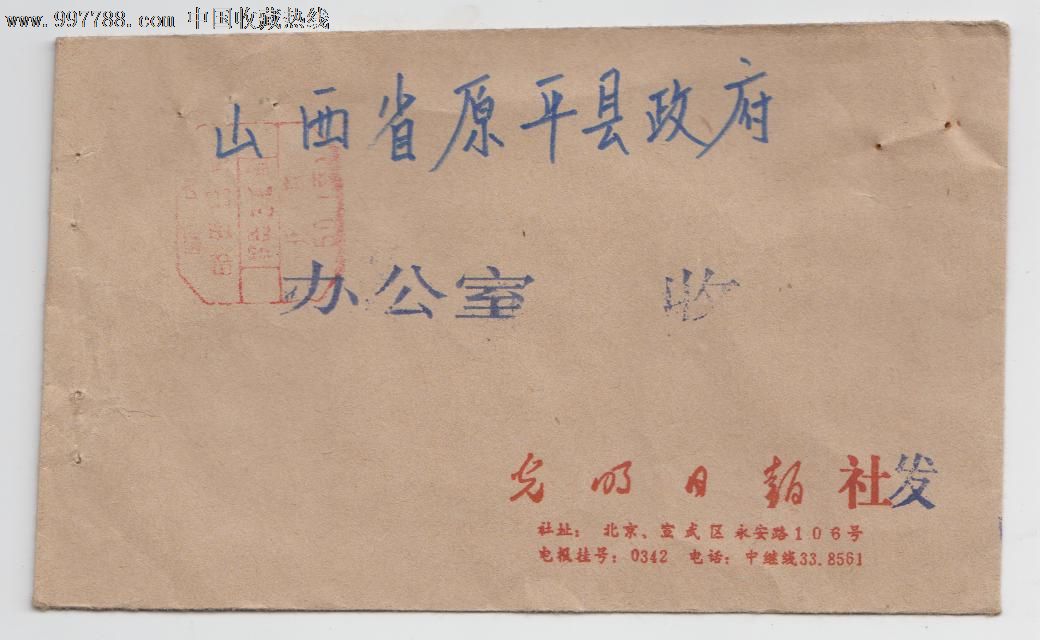 www.997788.com 中国收藏热线
山西省原平县政府
办公室 收
光明日报社发
社址：北京、宣武区永安路106号
电报挂号：0342 电话：中继线33.8561